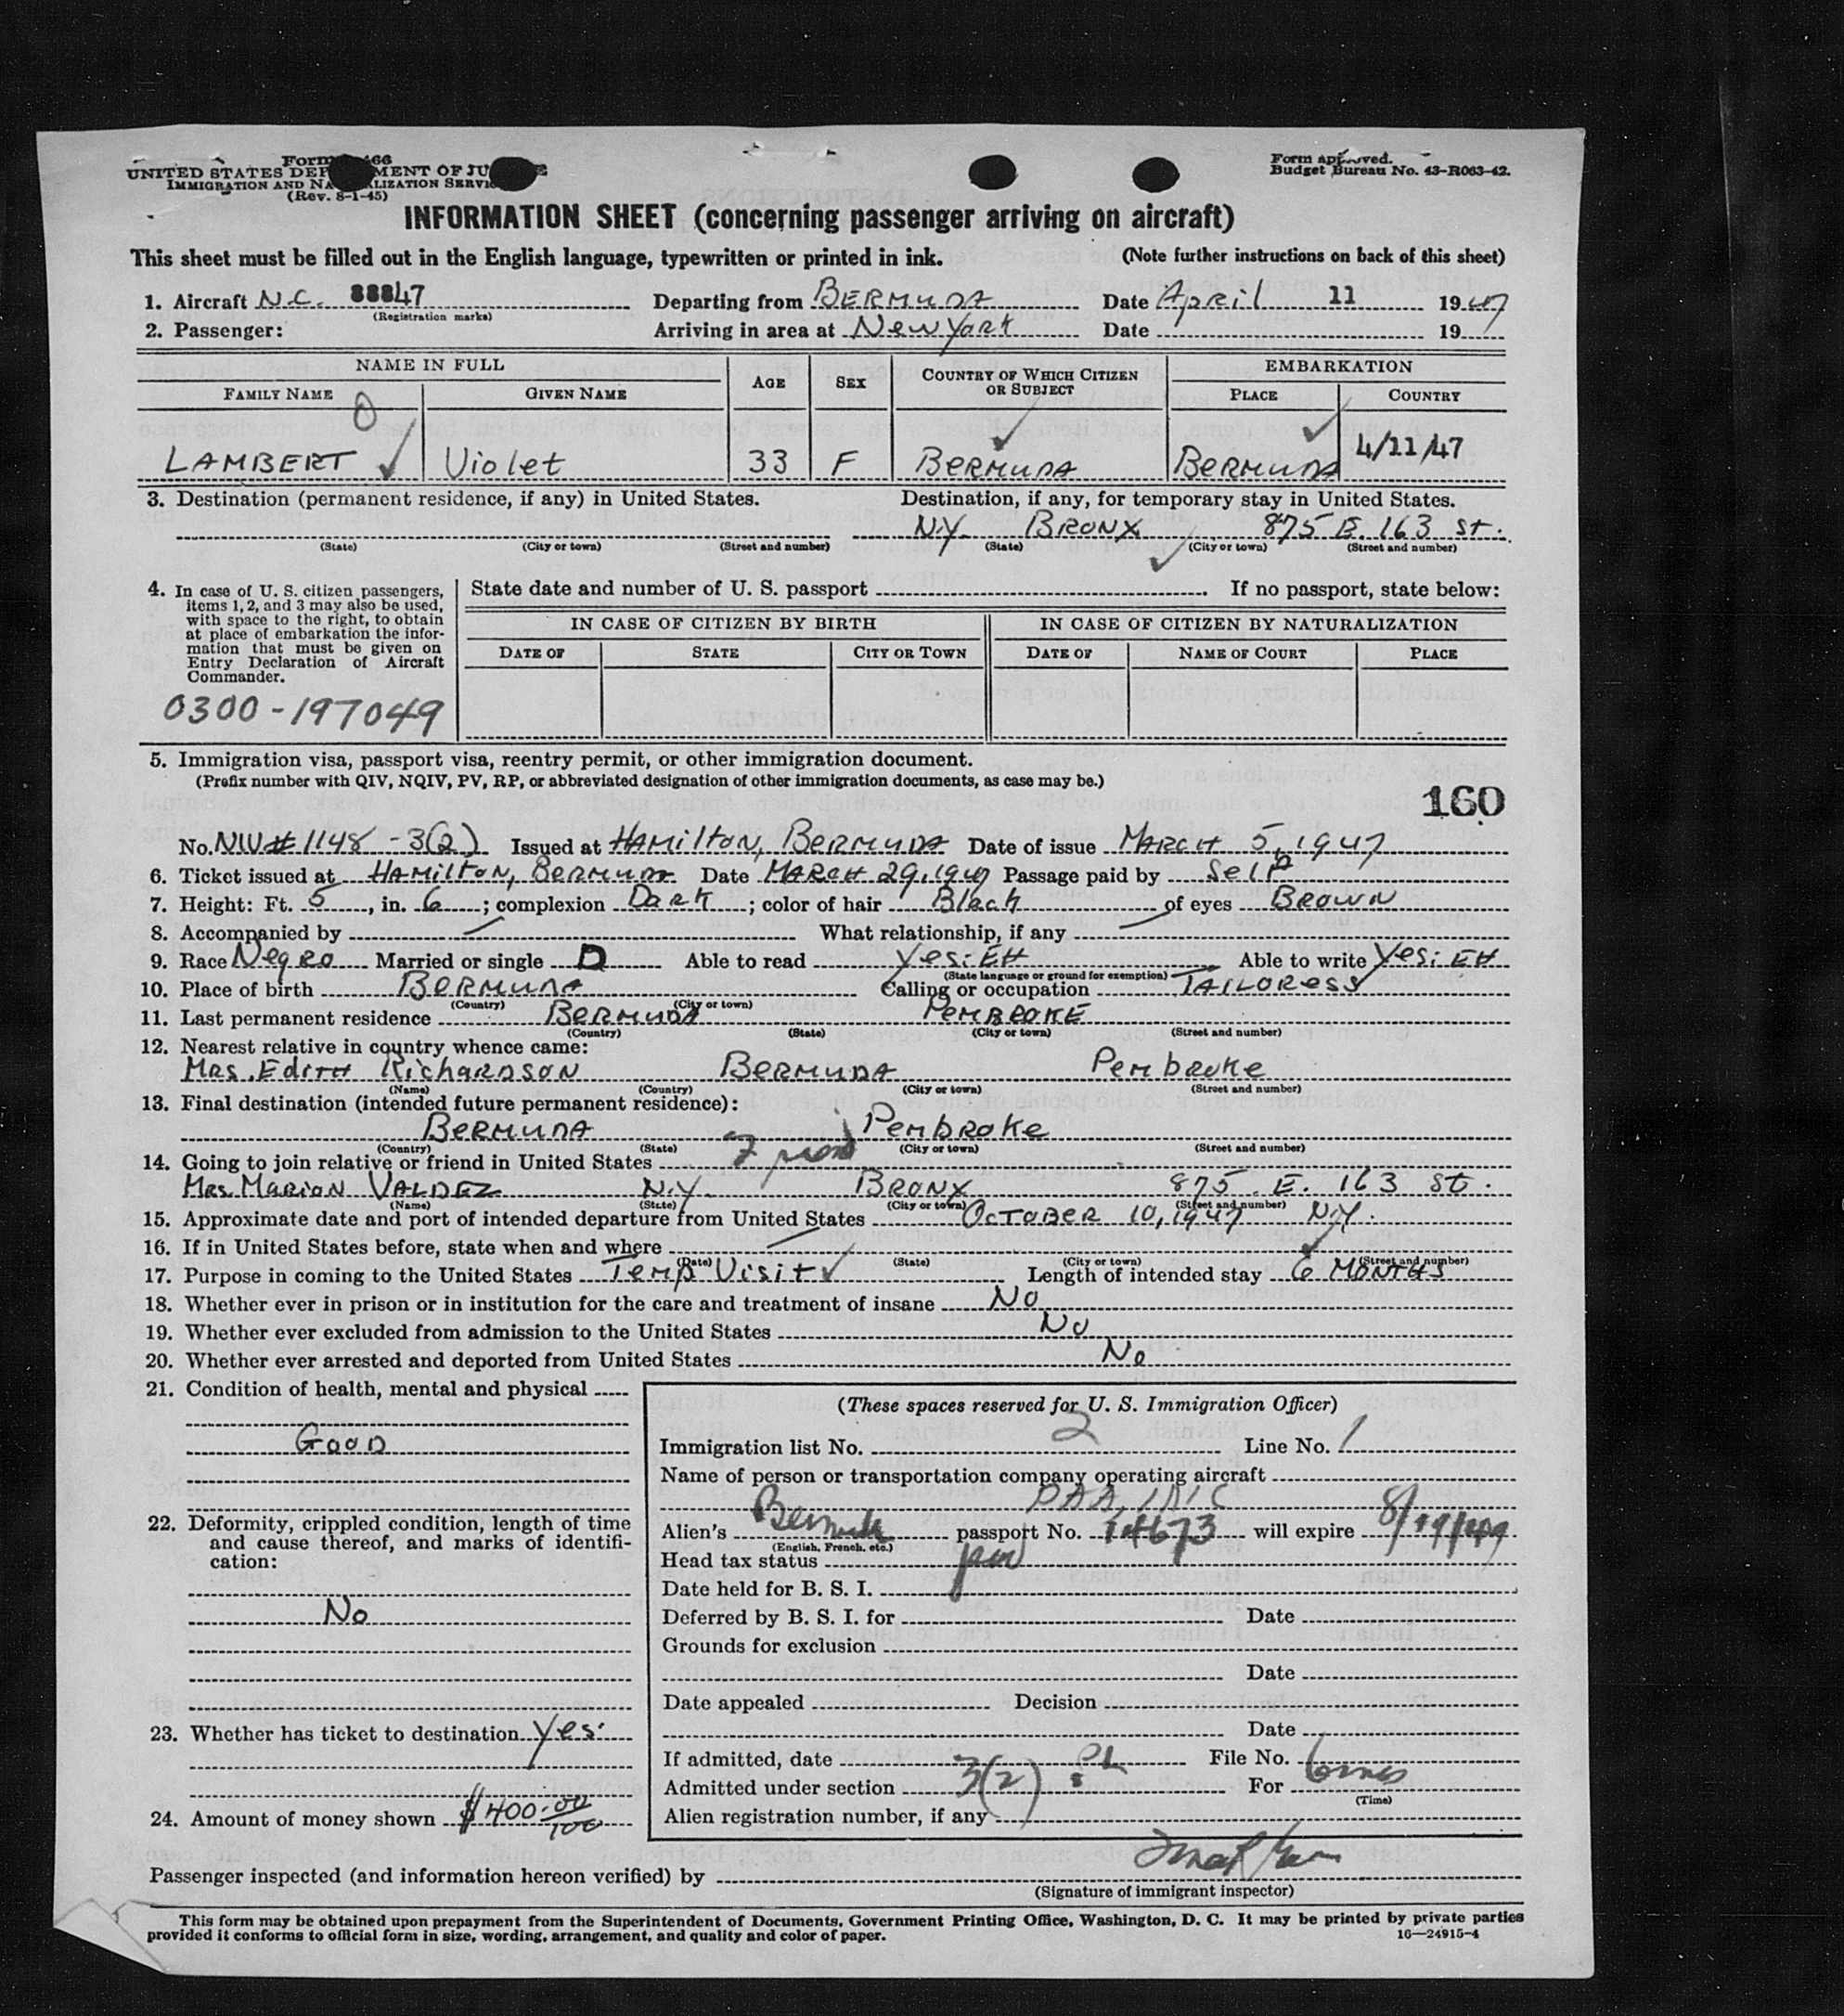 Form 466
UNITED STATES DEPARTMENT OF JUSTICE
IMMIGRATION AND NATURALIZATION SERVICE
(Rev. 8-1-45)
Form approved.
Budget Bureau No. 43-R063-42.
INFORMATION SHEET (concerning passenger arriving on aircraft)
This sheet must be filled out in the English language, typewritten or printed in ink. (Note further instructions on back of this sheet)
1. Aircraft N.C. 88847 Departing from BERMUDA Date April 11 1947
(Registration marks)
2. Passenger: Arriving in area at New York Date 19
NAME IN FULL AGE SEX COUNTRY OF WHICH CITIZEN OR SUBJECT EMBARKATION
FAMILY NAME GIVEN NAME PLACE COUNTRY
0
LAMBERT Violet 33 F BERMUDA BERMUDA 4/11/47
3. Destination (permanent residence, if any) in United States. Destination, if any, for temporary stay in United States.
N.Y. BRONX 875 E. 163 St.
(State) (City or town) (Street and number) (State) (City or town) (Street and number)
4. In case of U. S. citizen passengers, items 1, 2, and 3 may also be used, with space to the right, to obtain at place of embarkation the information that must be given on Entry Declaration of Aircraft Commander.
0300-197049
State date and number of U. S. passport . If no passport, state below:
IN CASE OF CITIZEN BY BIRTH IN CASE OF CITIZEN BY NATURALIZATION
DATE OF STATE CITY OR TOWN DATE OF NAME OF COURT PLACE
5. Immigration visa, passport visa, reentry permit, or other immigration document.
(Prefix number with QIV, NQIV, PV, RP, or abbreviated designation of other immigration documents, as case may be.)
160
No. NIV# 1148 -3(2) Issued at HAMILTON, BERMUDA Date of issue MARCH 5, 1947
6. Ticket issued at HAMILTON, BERMUDA Date MARCH 29, 1947 Passage paid by Self
7. Height: Ft. 5, in. 6; complexion Dark; color of hair Black of eyes BROWN
8. Accompanied by What relationship, if any
9. Race Negro Married or single D Able to read Yes: EH Able to write Yes: EH
(State language or ground for exemption)
10. Place of birth BERMUDA Calling or occupation TAILORESS
(Country) (City or town)
11. Last permanent residence BERMUDA PEMBROKE
(Country) (State) (City or town) (Street and number)
12. Nearest relative in country whence came:
MRS. EDITH RICHARDSON BERMUDA Pembroke
(Name) (Country) (City or town) (Street and number)
13. Final destination (intended future permanent residence):
BERMUDA PEMBROKE
(Country) (State) (City or town) (Street and number)
14. Going to join relative or friend in United States
MRS. MARION VALDEZ N.Y. BRONX 875 E. 163 St.
(Name) (State) (City or town) (Street and number)
15. Approximate date and port of intended departure from United States OCTOBER 10, 1947 N.Y.
16. If in United States before, state when and where
(Date) (State) (City or town) (Street and number)
17. Purpose in coming to the United States Temp Visit Length of intended stay 6 MONTHS
18. Whether ever in prison or in institution for the care and treatment of insane No
19. Whether ever excluded from admission to the United States No
20. Whether ever arrested and deported from United States No
21. Condition of health, mental and physical
GOOD
22. Deformity, crippled condition, length of time and cause thereof, and marks of identification:
No
23. Whether has ticket to destination Yes
24. Amount of money shown $400.00/100
(These spaces reserved for U. S. Immigration Officer)
Immigration list No. 2 Line No. 1
Name of person or transportation company operating aircraft
PAA, INC
Alien's passport No. 14673 will expire
(English, French, etc.)
Head tax status
Date held for B. S. I.
Deferred by B. S. I. for Date
Grounds for exclusion
Date
Date appealed Decision
Date
If admitted, date File No.
Admitted under section 3(2) For 6 mos
(Time)
Alien registration number, if any
Passenger inspected (and information hereon verified) by
(Signature of immigrant inspector)
This form may be obtained upon prepayment from the Superintendent of Documents, Government Printing Office, Washington, D. C. It may be printed by private parties
provided it conforms to official form in size, wording, arrangement, and quality and color of paper. 16—24915-4